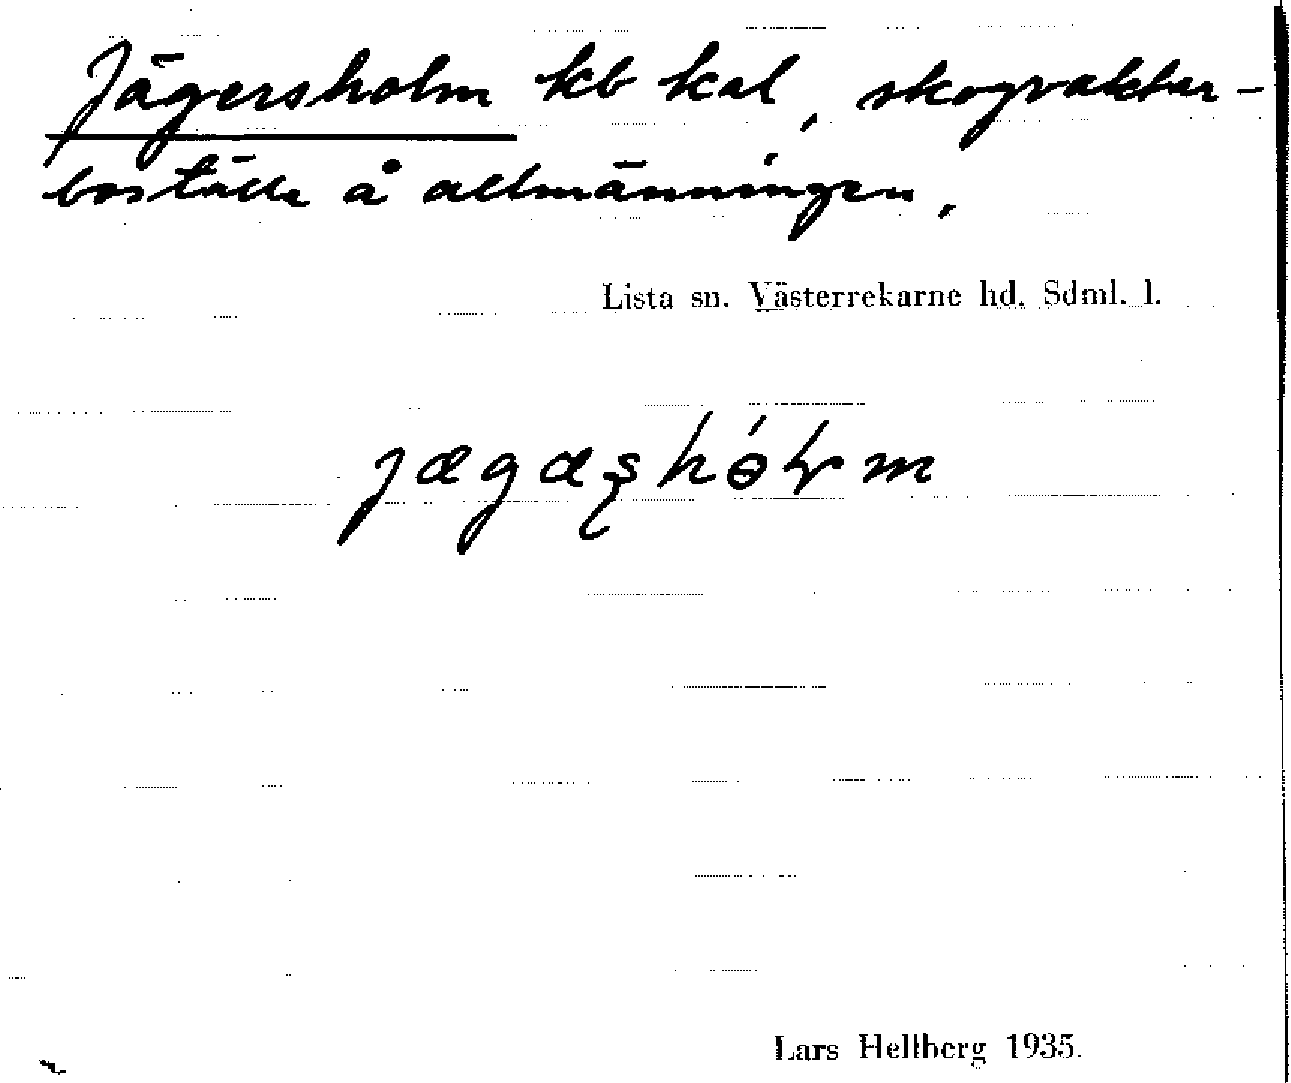 Jägersholm kb kal, skogvaktar-
boställe å allmänningen.
Lista sn. Västerrekarne hd. Sdml. l.
Lars Hellberg 1935.